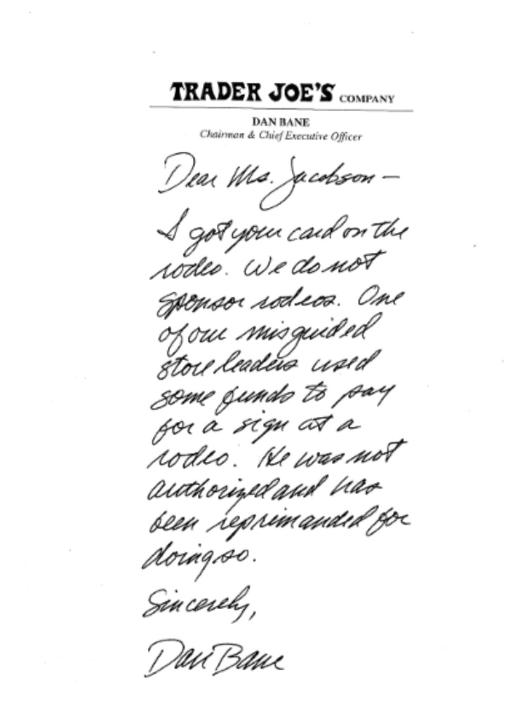 TRADER JOE'S COMPANY
DAN BANE
Chairman & Chief Executive Officer
Dear Ms. Jacobson –
I got your card on the
rodeo. We do not
sponsor rodeos. One
of our misguided
store leaders used
some funds to pay
for a sign at a
rodeo. He was not
authorized and has
been reprimanded for
doing so.
Sincerely,
Dan Bane